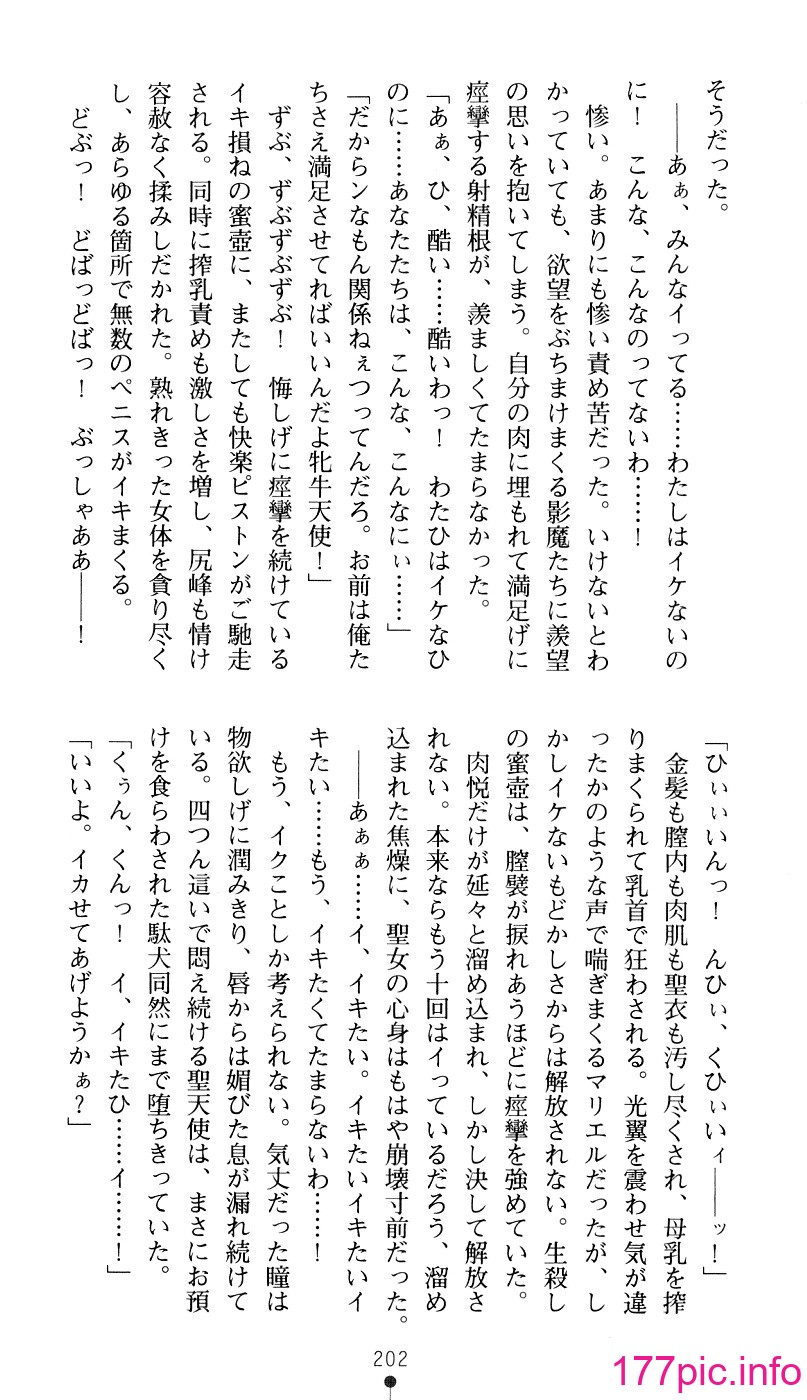 そうだった。
　――あぁ、みんなイってる……わたしはイケないの
に！　こんな、こんなのってないわ……！
　惨い。あまりにも惨い責め苦だった。いけないとわ
かっていても、欲望をぶちまけまくる影魔たちに羨望
の思いを抱いてしまう。自分の肉に埋もれて満足げに
痙攣する射精根が、羨ましくてたまらなかった。
「あぁ、ひ、酷い……酷いわっ！　わたひはイケなひ
のに……あなたたちは、こんな、こんなにぃ……」
「だからンなもん関係ねぇつってんだろ。お前は俺た
ちさえ満足させてればいいんだよ牝牛天使！」
　ずぶ、ずぶずぶずぶ！　悔しげに痙攣を続けている
イキ損ねの蜜壺に、またしても快楽ピストンがご馳走
される。同時に搾乳責めも激しさを増し、尻峰も情け
容赦なく揉みしだかれた。熟れきった女体を貪り尽く
し、あらゆる箇所で無数のペニスがイキまくる。
　どぶっ！　どばっどばっ！　ぶっしゃああ――！
「ひぃぃいんっ！　んひぃ、くひぃいィ――ッ！」
　金髪も膣内も肉肌も聖衣も汚し尽くされ、母乳を搾
りまくられて乳首で狂わされる。光翼を震わせ気が違
ったかのような声で喘ぎまくるマリエルだったが、し
かしイケないもどかしさからは解放されない。生殺し
の蜜壺は、膣襞が捩れあうほどに痙攣を強めていた。
　肉悦だけが延々と溜め込まれ、しかし決して解放さ
れない。本来ならもう十回はイっているだろう、溜め
込まれた焦燥に、聖女の心身はもはや崩壊寸前だった。
　――あぁぁ……イ、イキたい。イキたいイキたいイ
キたい……もう、イキたくてたまらないわ……！
　もう、イクことしか考えられない。気丈だった瞳は
物欲しげに潤みきり、唇からは媚びた息が漏れ続けて
いる。四つん這いで悶え続ける聖天使は、まさにお預
けを食らわされた駄犬同然にまで堕ちきっていた。
「くぅん、くんっ！　イ、イキたひ……イ……！」
「いいよ。イカせてあげようかぁ？」
202
177pic.info